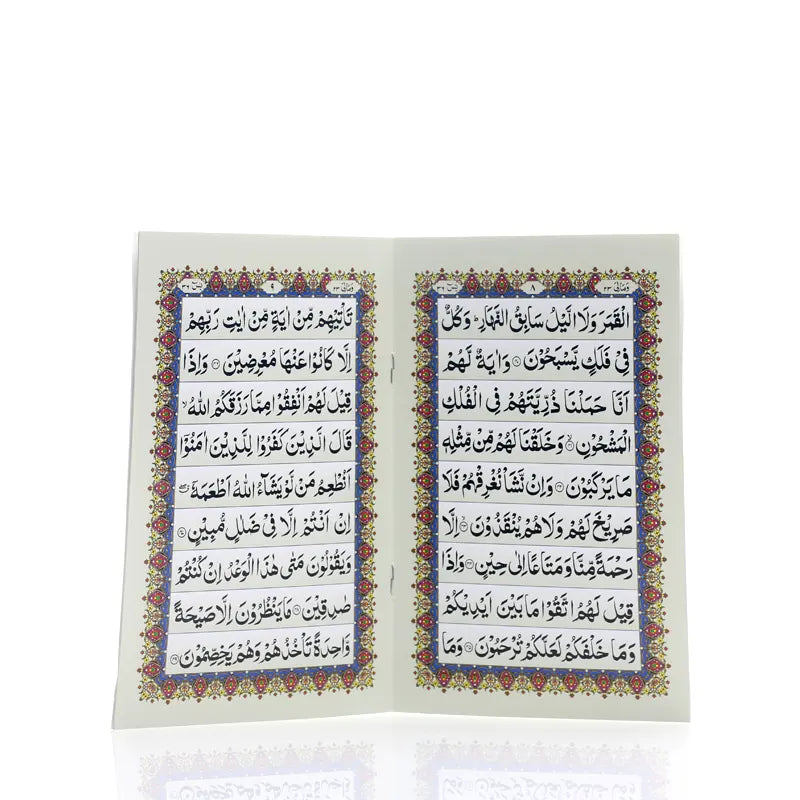 يٰسٓ ٣٦
٨
وَمَالِیَ ٢٣
الْقَمَرَ وَلَا الَّيْلُ سَابِقُ النَّهَارِ ؕ وَكُلٌّ
فِیْ فَلَكٍ يَّسْبَحُوْنَ ۟ وَاٰيَةٌ لَّهُمْ
اَنَّا حَمَلْنَا ذُرِّيَّتَهُمْ فِی الْفُلْكِ
الْمَشْحُوْنِ ۟ وَخَلَقْنَا لَهُمْ مِّنْ مِّثْلِهٖ
مَا يَرْكَبُوْنَ ۟ وَاِنْ نَّشَاْ نُغْرِقْهُمْ فَلَا
صَرِيْخَ لَهُمْ وَلَا هُمْ يُنْقَذُوْنَ ۟ اِلَّا
رَحْمَةً مِّنَّا وَمَتَاعًا اِلٰی حِيْنٍ ۟ وَاِذَا
قِيْلَ لَهُمُ اتَّقُوْا مَا بَيْنَ اَيْدِيْكُمْ
وَمَا خَلْفَكُمْ لَعَلَّكُمْ تُرْحَمُوْنَ ۟ وَمَا
يٰسٓ ٣٦
٩
وَمَالِیَ ٢٣
تَاْتِيْهِمْ مِّنْ اٰيَةٍ مِّنْ اٰيٰتِ رَبِّهِمْ
اِلَّا كَانُوْا عَنْهَا مُعْرِضِيْنَ ۟ وَاِذَا
قِيْلَ لَهُمْ اَنْفِقُوْا مِمَّا رَزَقَكُمُ اللّٰهُ ۙ
قَالَ الَّذِيْنَ كَفَرُوْا لِلَّذِيْنَ اٰمَنُوْۤا
اَنُطْعِمُ مَنْ لَّوْ يَشَآءُ اللّٰهُ اَطْعَمَهٗۤ ۖ
اِنْ اَنْتُمْ اِلَّا فِیْ ضَلٰلٍ مُّبِيْنٍ ۟
وَيَقُوْلُوْنَ مَتٰی هٰذَا الْوَعْدُ اِنْ كُنْتُمْ
صٰدِقِيْنَ ۟ مَا يَنْظُرُوْنَ اِلَّا صَيْحَةً
وَّاحِدَةً تَاْخُذُهُمْ وَهُمْ يَخِصِّمُوْنَ ۟